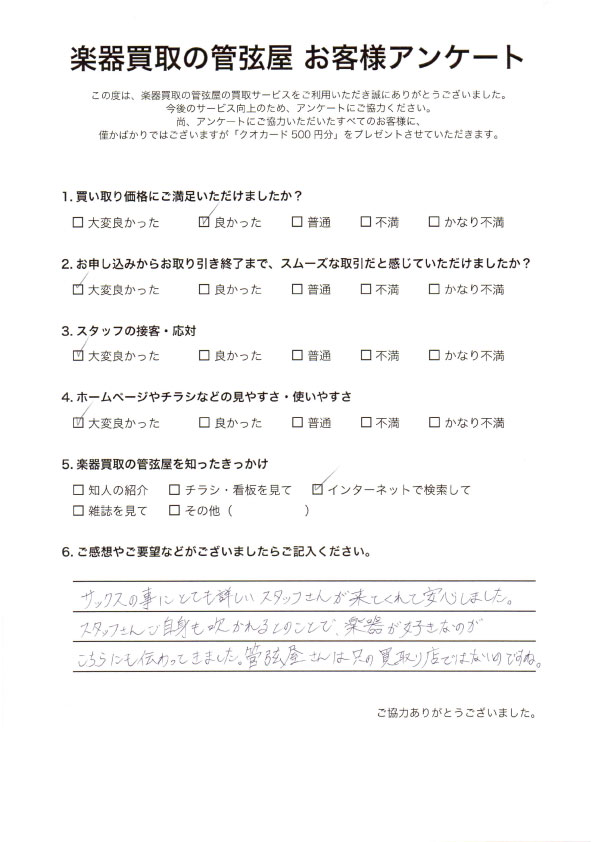 楽器買取の管弦屋 お客様アンケート
この度は、楽器買取の管弦屋の買取サービスをご利用いただき誠にありがとうございました。
今後のサービス向上のため、アンケートにご協力ください。
尚、アンケートにご協力いただいたすべてのお客様に、
僅かばかりではございますが「クオカード 500 円分」をプレゼントさせていただきます。
1. 買い取り価格にご満足いただけましたか？
□ 大変良かった ☑ 良かった □ 普通 □ 不満 □ かなり不満
2. お申し込みからお取り引き終了まで、スムーズな取引だと感じていただけましたか？
☑ 大変良かった □ 良かった □ 普通 □ 不満 □ かなり不満
3. スタッフの接客・応対
☑ 大変良かった □ 良かった □ 普通 □ 不満 □ かなり不満
4. ホームページやチラシなどの見やすさ・使いやすさ
☑ 大変良かった □ 良かった □ 普通 □ 不満 □ かなり不満
5. 楽器買取の管弦屋を知ったきっかけ
□ 知人の紹介 □ チラシ・看板を見て ☑ インターネットで検索して
□ 雑誌を見て □ その他（ ）
6. ご感想やご要望などがございましたらご記入ください。
サックスの事にとても詳しいスタッフさんが来てくれて安心しました。
スタッフさんご自身も吹かれるとのことで、楽器が好きなのが
こちらにも伝わってきました。管弦屋さんは只の買取り店ではないのですね。
ご協力ありがとうございました。